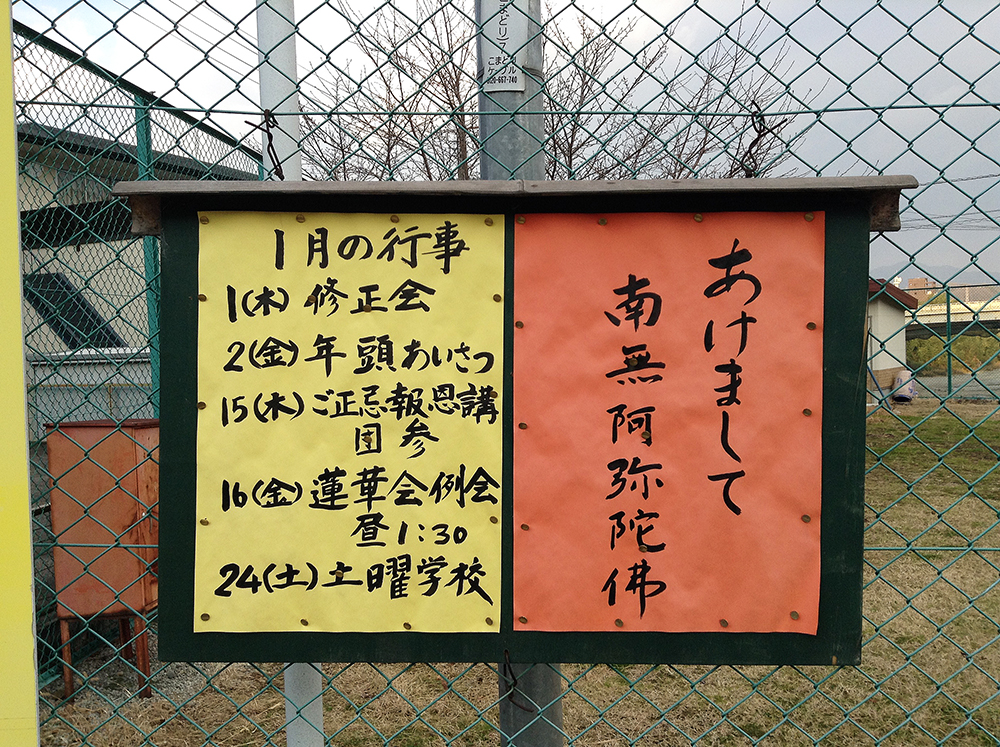 1月の行事
1(木) 修正会
2(金) 年頭あいさつ
15(木) ご正忌報恩講
団参
16(金) 蓮華会例会
昼1:30
24(土) 土曜学校
あけまして
南無阿弥陀佛